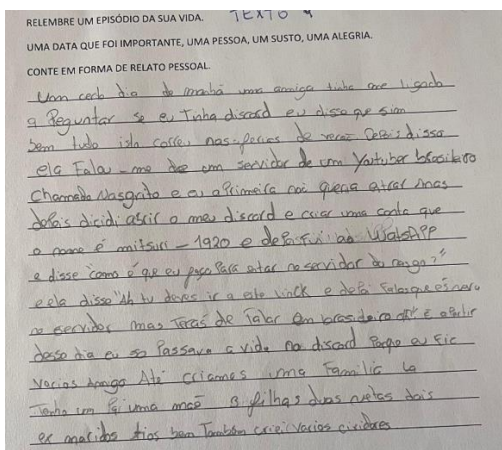 TEXTO 4
RELEMBRE UM EPISÓDIO DA SUA VIDA.
UMA DATA QUE FOI IMPORTANTE, UMA PESSOA, UM SUSTO, UMA ALEGRIA.
CONTE EM FORMA DE RELATO PESSOAL.
Um certo dia de manhã uma amiga tinha me ligado
a Peguntar se eu tinha discord eu disse que sim
bem tudo isto correu nas ferias de verão Depois disso
ela Falou-me de um servidor de um Youtuber brasileiro
Chamado Nasgrito e eu a Primeira não queria entrar mas
depois dicidi abrir o meu discord e criar uma conta que
o nome é mitsuri-1920 e depois fui ao WatsAPP
e disse "como é que eu faço Para entar no servidor do nasgo?"
e ela disse "Ah tu deves ir a este linck e depois Falas que és nova
no servidor mas Terás de Falar em brasileiro E a Partir
desse dia eu so Passava a vida no discord Porque eu Fiz
Varios Amigo Até criamos uma Familia la
Tenho um Pai uma mãe 3 filhas duas netas dois
ex maridos tios bem Também criei varios